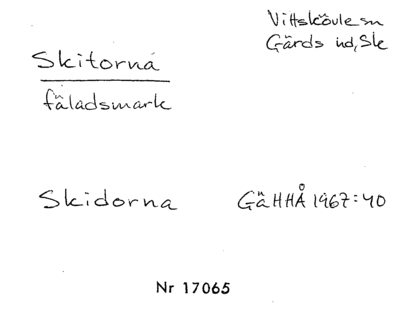 Vittskövle sn
Gärds hd, Sk
Skitorna
fäladsmark
Skidorna GäHHÅ 1967:40
Nr 17065